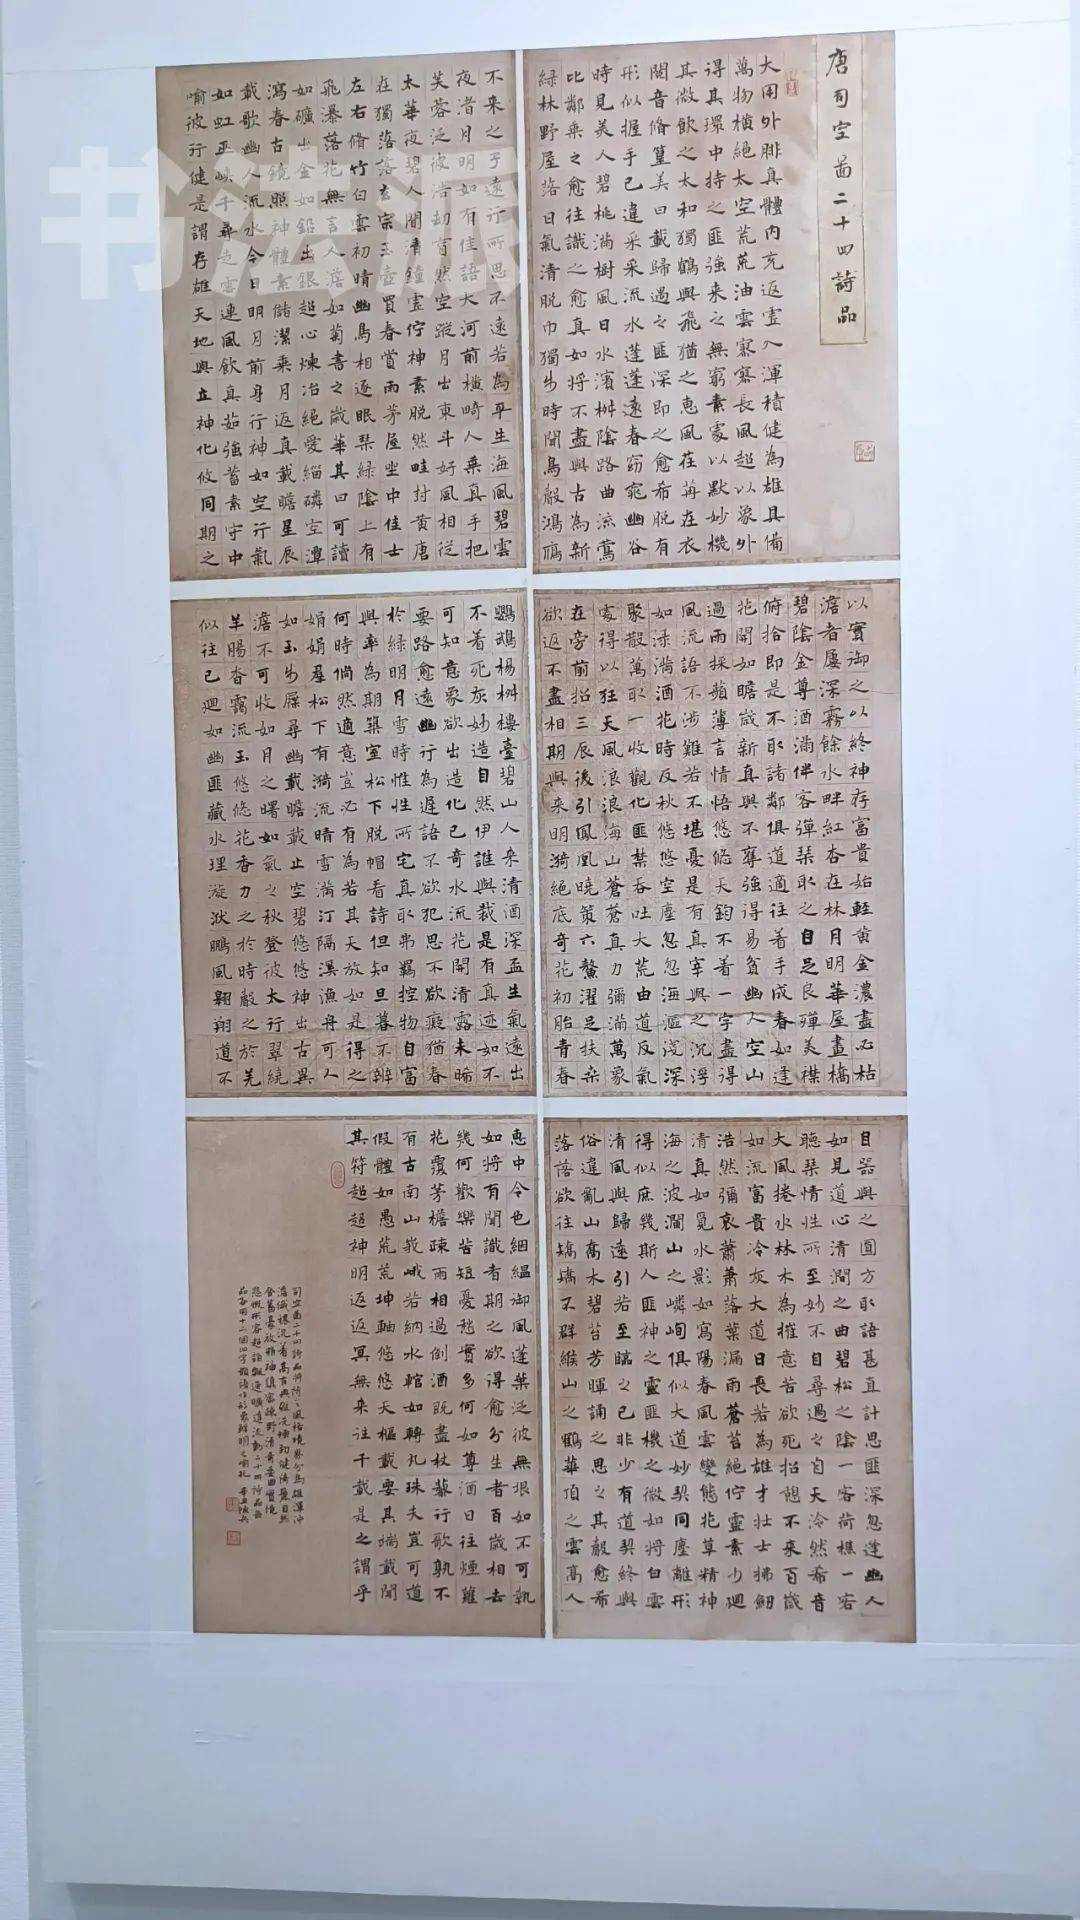 唐司空啚二十四詩品
大用外腓真體內充返虛入渾積健為雄具備
萬物橫絕太空荒荒油雲寥寥長風超以象外
得其環中持之匪強来之無窮素處以默妙機
其微飲之太和獨鶴與飛猶之惠風荏苒在衣
閱音脩篁美曰載歸遇之匪深即之愈希脫有
形似握手已違采采流水蓬蓬遠春窈窕幽谷
時見美人碧桃滿樹風日水濱柳陰路曲流鶯
比鄰乘之愈往識之愈真如将不盡與古為新
綠林野屋落日氣清脫巾獨步時聞鳥聲鴻雁
不来之子遠行所思不遠若為平生海風碧雲
夜渚月明如有佳語大河前橫畸人乘真手把
芙蓉泛彼浩劫窅然空蹤月出東斗好風相従
太華夜碧人聞清鐘虛佇神素脫然畦封黄唐
在獨落落玄宗玉壺買春賞雨茅屋坐中佳士
左右脩竹白雲初晴幽鳥相逐眠琴綠陰上有
飛瀑落花無言人澹如菊書之歲華其曰可讀
如礦出金如鉛出銀超心煉冶絕愛緇磷空潭
瀉春古鏡照神體素儲潔乘月返真載瞻星辰
載歌幽人流水今日明月前身行神如空行氣
如虹巫峽千尋走雲連風飲真茹強蓄素守中
喻彼行健是謂存雄天地與立神化攸同期之
以實御之以終神存富貴始輕黄金濃盡必枯
澹者屢深霧餘水畔紅杏在林月明華屋畫橋
碧陰金尊酒滿伴客彈琴取之自足良殫美襟
俯拾即是不取諸鄰俱道適往着手成春如逢
花開如瞻歲新真與不奪強得易貧幽人空山
過雨採蘋薄言情悟悠悠天鈞不着一字盡得
風流語不涉難若不堪憂是有真宰與之沉浮
如渌滿酒花時反秋悠悠空塵忽忽海漚淺深
聚散萬取一收觀化匪禁吞吐大荒由道反氣
處得以狂天風浪浪海山蒼蒼真力彌滿萬象
在旁前招三辰後引鳳凰曉策六鰲濯足扶桑
欲返不盡相期與来明漪絕底奇花初胎青春
鸚鵡楊柳樓臺碧山人来清酒深盃生氣遠出
不着死灰妙造自然伊誰與裁是有真迹如不
可知意象欲出造化已奇水流花開清露未晞
要路愈遠幽行為遲語不欲犯思不欲癡猶春
於綠明月雪時惟性所宅真取弗羈控物自富
與率為期築室松下脫帽看詩但知旦暮不辨
何時倘然適意豈必有為若其天放如是得之
娟娟羣松下有漪流晴雪滿汀隔溪漁舟可人
如玉步屧尋幽載瞻載止空碧悠悠神出古異
澹不可收如月之曙如氣之秋登彼太行翠繞
羊腸杳靄流玉悠悠花香力之於時聲之於羌
似往已迴如幽匪藏水理漩洑鵬風翱翔道不
自器與之圓方取語甚直計思匪深忽逢幽人
如見道心清澗之曲碧松之陰一客荷樵一客
聽琴情性所至妙不自尋遇之自天泠然希音
大風捲水林木為摧意苦欲死招憩不来百歲
如流富貴冷灰大道日喪若為雄才壯士拂劍
浩然彌哀蕭蕭落葉漏雨蒼苔絕佇靈素少迴
清真如覓水影如寫陽春風雲變態花草精神
海之波瀾山之嶙峋俱似大道妙契同塵離形
得似庶幾斯人匪神之靈匪機之微如将白雲
清風與歸遠引若至臨之已非少有道契終與
俗違亂山高木碧苔芳暉誦之思之其聲愈希
落落欲往矯矯不群緱山之鶴華頂之雲高人
惠中令色絪縕御風蓬葉泛彼無垠如不可執
如将有聞識者期之欲得愈分生者百歲相去
幾何歡樂苦短憂愁實多何如尊酒日往煙蘿
花覆茅檐疎雨相過倒酒既盡杖藜行歌孰不
有古南山峩峨若納水輨如轉丸珠夫豈可道
假體如愚荒荒坤軸悠悠天樞載要其端載聞
其符超超神明返返冥無来往千載是之謂乎
司空啚二十四詩品将詩之風格境界分為雄渾沖
澹纖穠沉着高古典雅洗煉勁健綺麗自然
含蓄豪放精神縝密疎野清奇委曲實境
悲慨形容超詣飄逸曠達流動二十四詩品每
品各用十二個四字韻語作形象鮮明之
书法派